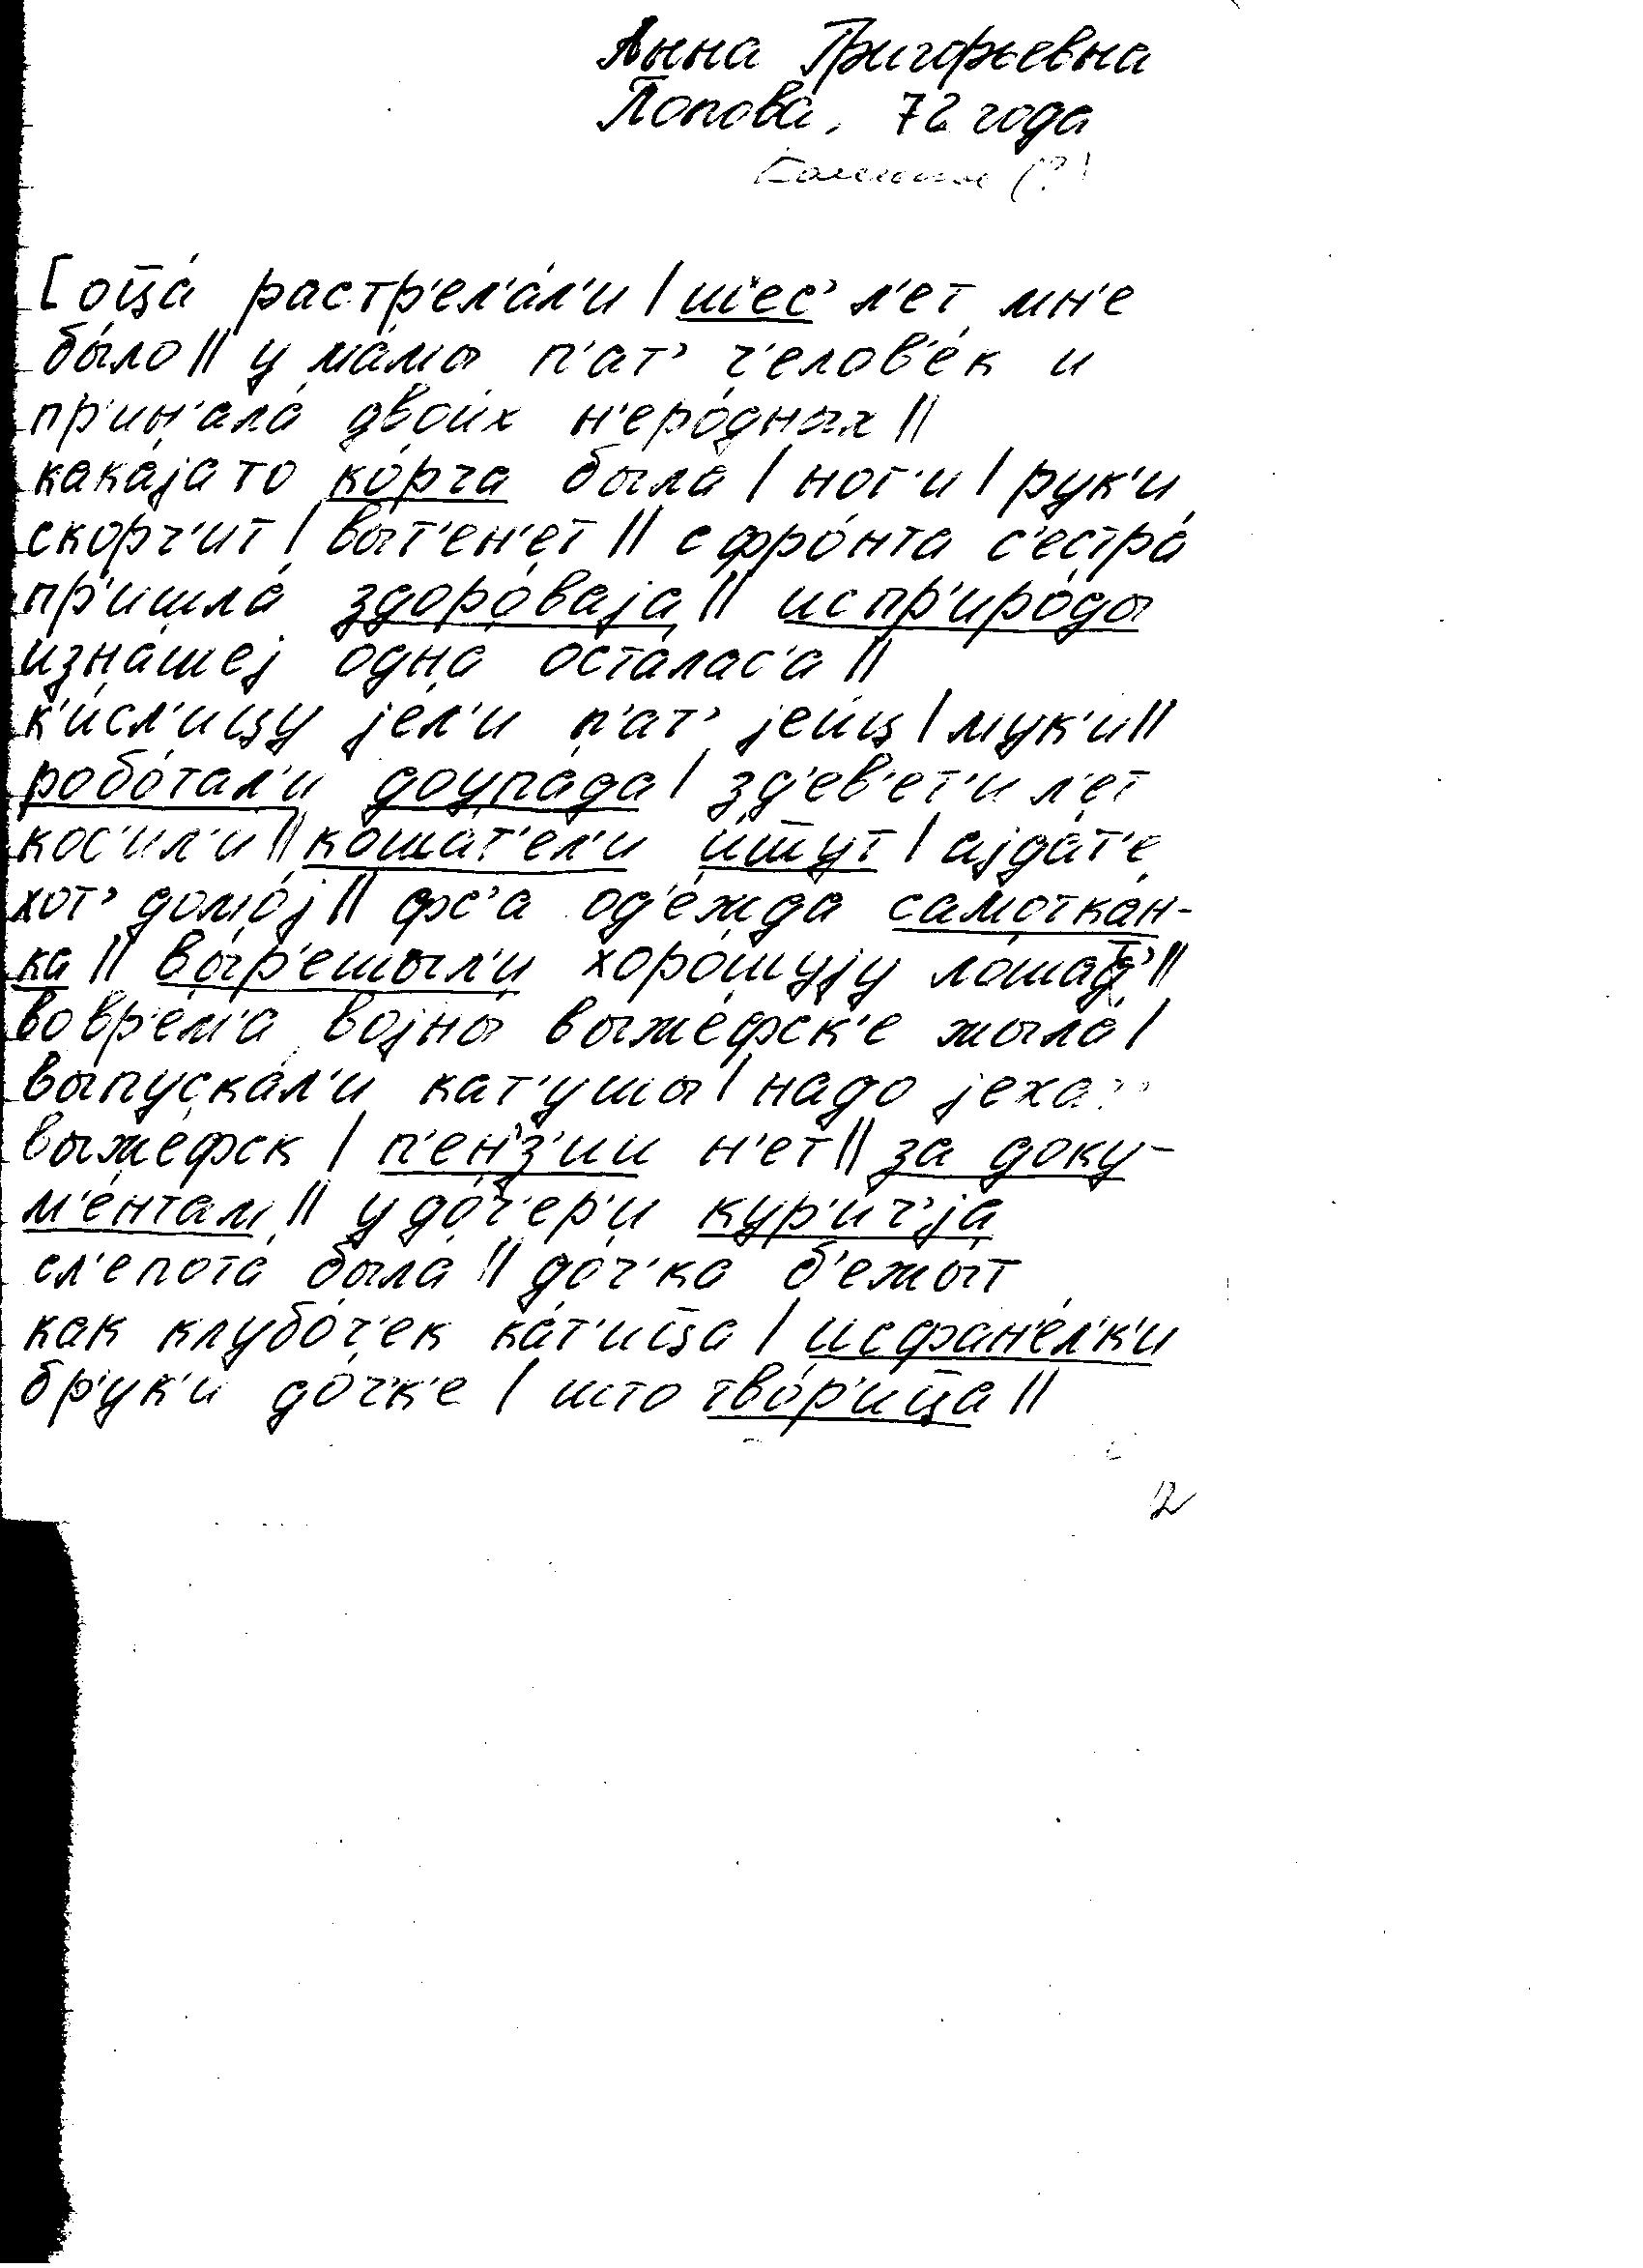 Анна Григорьевна
Попова, 72 года
(?)
[оц̄а́ растр'ел'а́л'и | ш'ес' л'ет мн'е
бы́ло || у ма́мы п'ат' ч'елов'е́к и
пр'ин'ала́ двои́х н'еро́дных ||
кака́jато ко́рча была́ | ног'и | рук'и
скорч'ит | выт'ен'ет || с фро́нта с'естра́
пр'ишла́ здоро́ваjа || испр'иро́ды
изна́шеj одна́ осталас'а ||
к'и́сл'ицу jе́л'и п'ат' jеи́ц | мук'и ||
робо́тал'и доупа́да | зд'ев'ет'и л'ет
кос'ил'и || кошат'ел'и и́ш̄ут | аjда́т'е
хот' домо́j || фс'а од'е́жда самотка́н-
ка || вы́р'ешыл'и хоро́шуjу ло́шат' ||
вовр'е́м'а воjны́ выже́фск'е жыла́ |
выпуска́л'и кат'ушы | надо jеха
выже́фск | п'е́н'з'ии н'ет || за доку-
м'е́нтам || у до́ч'ер'и кур'и́ч'jа
сл'епота́ была́ || до́ч'ка б'ежы́т
как клубо́ч'ек ка́т'иц̄а | исфан'е́л'к'и
бр'у́к'и до́ч'к'е | што тво́р'иц̄а ||
2